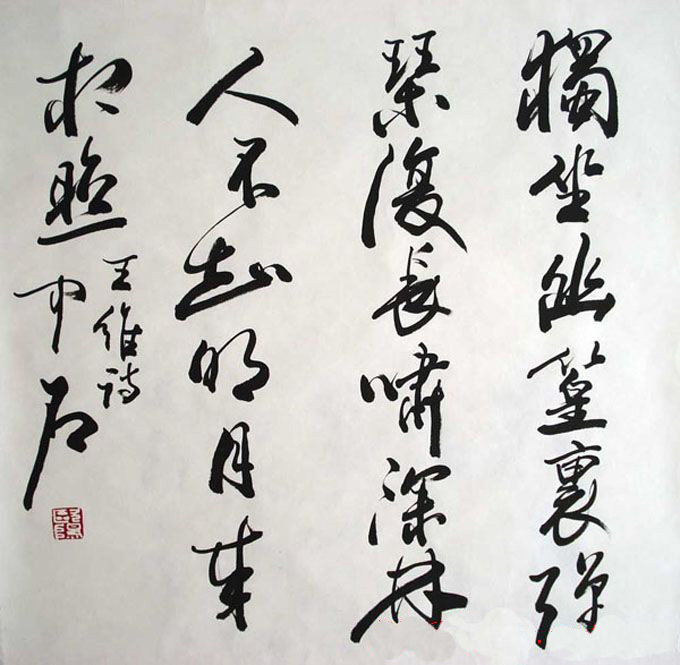 獨坐幽篁裏彈
琴復長嘯深林
人不知明月來
相照
王維詩
中石